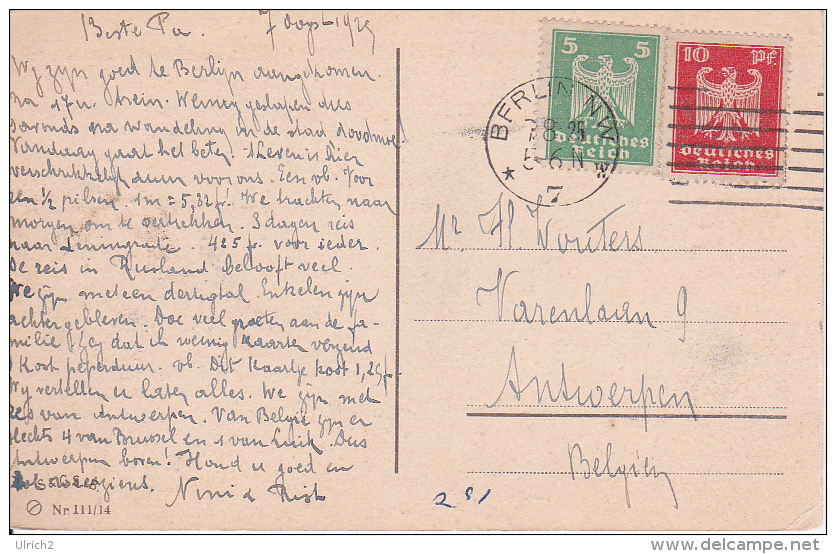 Beste Pa. 7 1925
Wij zijn goed te Berlijn aangekomen
na 17 u. trein. Weinig geslapen dus
savonds na wandeling in de stad doodmoe!
Vandaag gaat het beter. 't Leven is hier
verschrikkelijk duur voor ons. Een vb. Voor
een ½ pilsen 1m = 5,32 fr! We trachten naar
morgen om te vertrekken. 3 dagen reis
naar Leningrade. 425 fr. voor ieder.
De reis in Rusland belooft veel.
We zijn met een dertigtal. Enkelen zijn
achtergebleven. Doe veel groeten aan de fa-
milie. Zeg dat ik weinig kaarten verzend
Kost peperduur. vb. Dit kaartje kost 1,25 fr.
Wij vertellen u later alles. We zijn met
zes van Antwerpen. Van België zijn er
slechts 4 van Brussel en 1 van Luik. Dus
Antwerpen boven! Houd u goed en
tot weerziens. Nini &
Nr. 111/14
5 5
Deutsches
Reich
10 Pf.
Deutsches
Reich
BERLIN NW
7.8.25
5-6 N
7
Mr H Wouters
Varenlaan 9
Antwerpen
Belgien
251
Ulrich2
delcampe.net